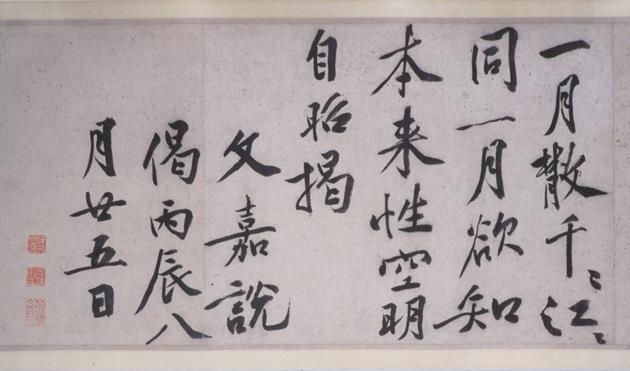 一月散千〻江〻
同一月欲知
本来性空明
自昭揭
文嘉說
偈丙辰八
月廿五日